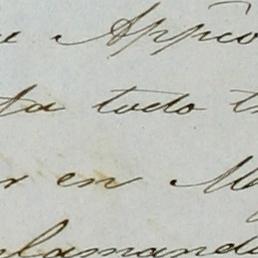 e Appco
ta todo t
r en M
lamand